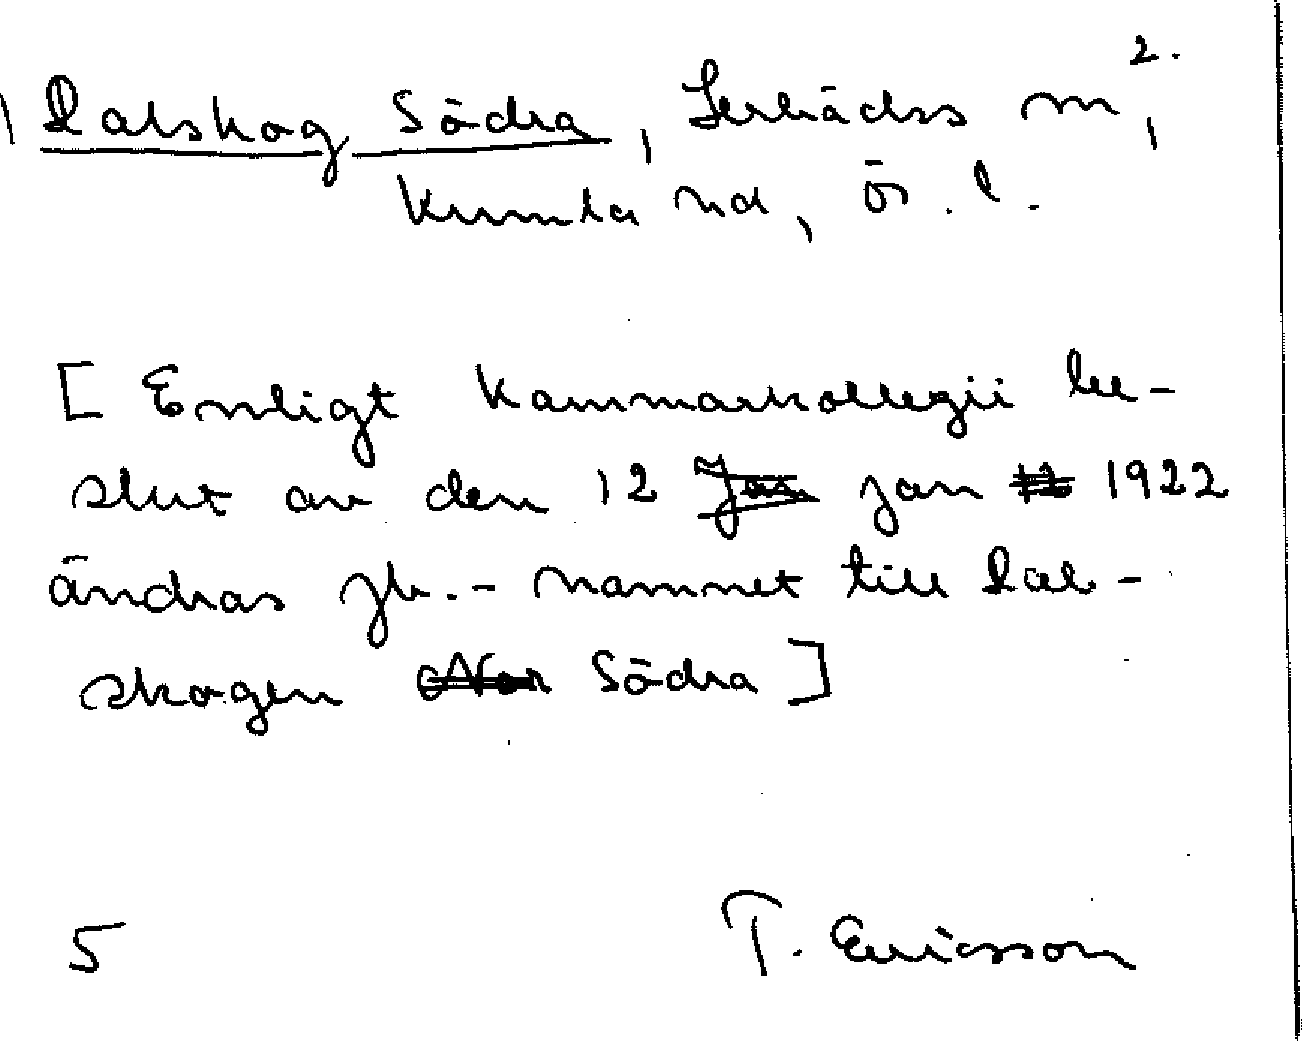 Dalskog Södra, Lerbäcks sn,
2.
Kumla hd, Ör. l.
[ Enligt Kammarkollegii be-
slut av den 12 Jan jan 12 1922
ändras jb.-namnet till Dal-
skogen Nor Södra ]
5 T. Ericsson